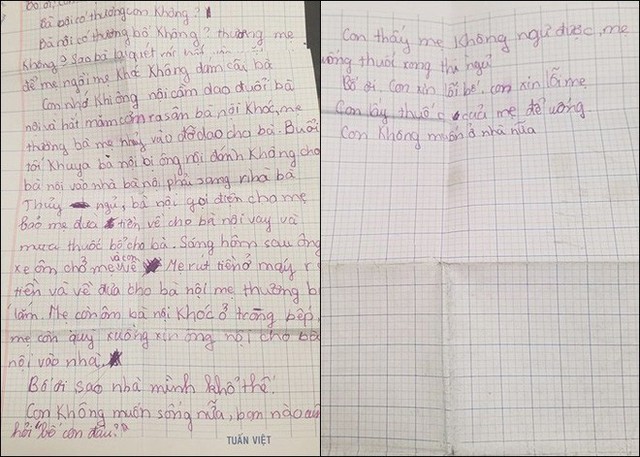 Bố ơi, con
Bà nội có thương con không?
Bà nội có thương bố không? thương mẹ
không? Sao bà lại quét vôi
để mẹ ngồi mẹ khóc không dám cãi bà
Con nhớ khi ông nội cầm dao đuổi bà
nội và hất mâm cơm ra sân bà nội khóc, mẹ
thương bà mẹ nhảy vào đỡ dao cho bà. Buổi
tối khuya bà nội bị ông nội đánh không cho
bà nội vào nhà bà nội phải sang nhà bà
Thủy ngủ, bà nội gọi điện cho mẹ
bảo mẹ đưa tiền về cho bà nội vay và
mua thuốc bổ cho bà. Sáng hôm sau ông
xe ôm chở mẹ và con về Mẹ rút tiền ở máy r
tiền và về đưa cho bà nội mẹ thương b
lắm. Mẹ còn ôm bà nội khóc ở trong bếp,
mẹ còn quỳ xuống xin ông nội cho bà
nội vào nhà,
Bố ơi sao nhà mình khổ thế.
Con không muốn sống nữa, bạn nào cũng
hỏi "bố con đâu?"
TUẤN VIỆT
Con thấy mẹ không ngủ được, mẹ
uống thuốc xong thì ngủ
Bố ơi. Con xin lỗi bố, con xin lỗi mẹ
Con lấy thuốc của mẹ để uống.
Con không muốn ở nhà nữa